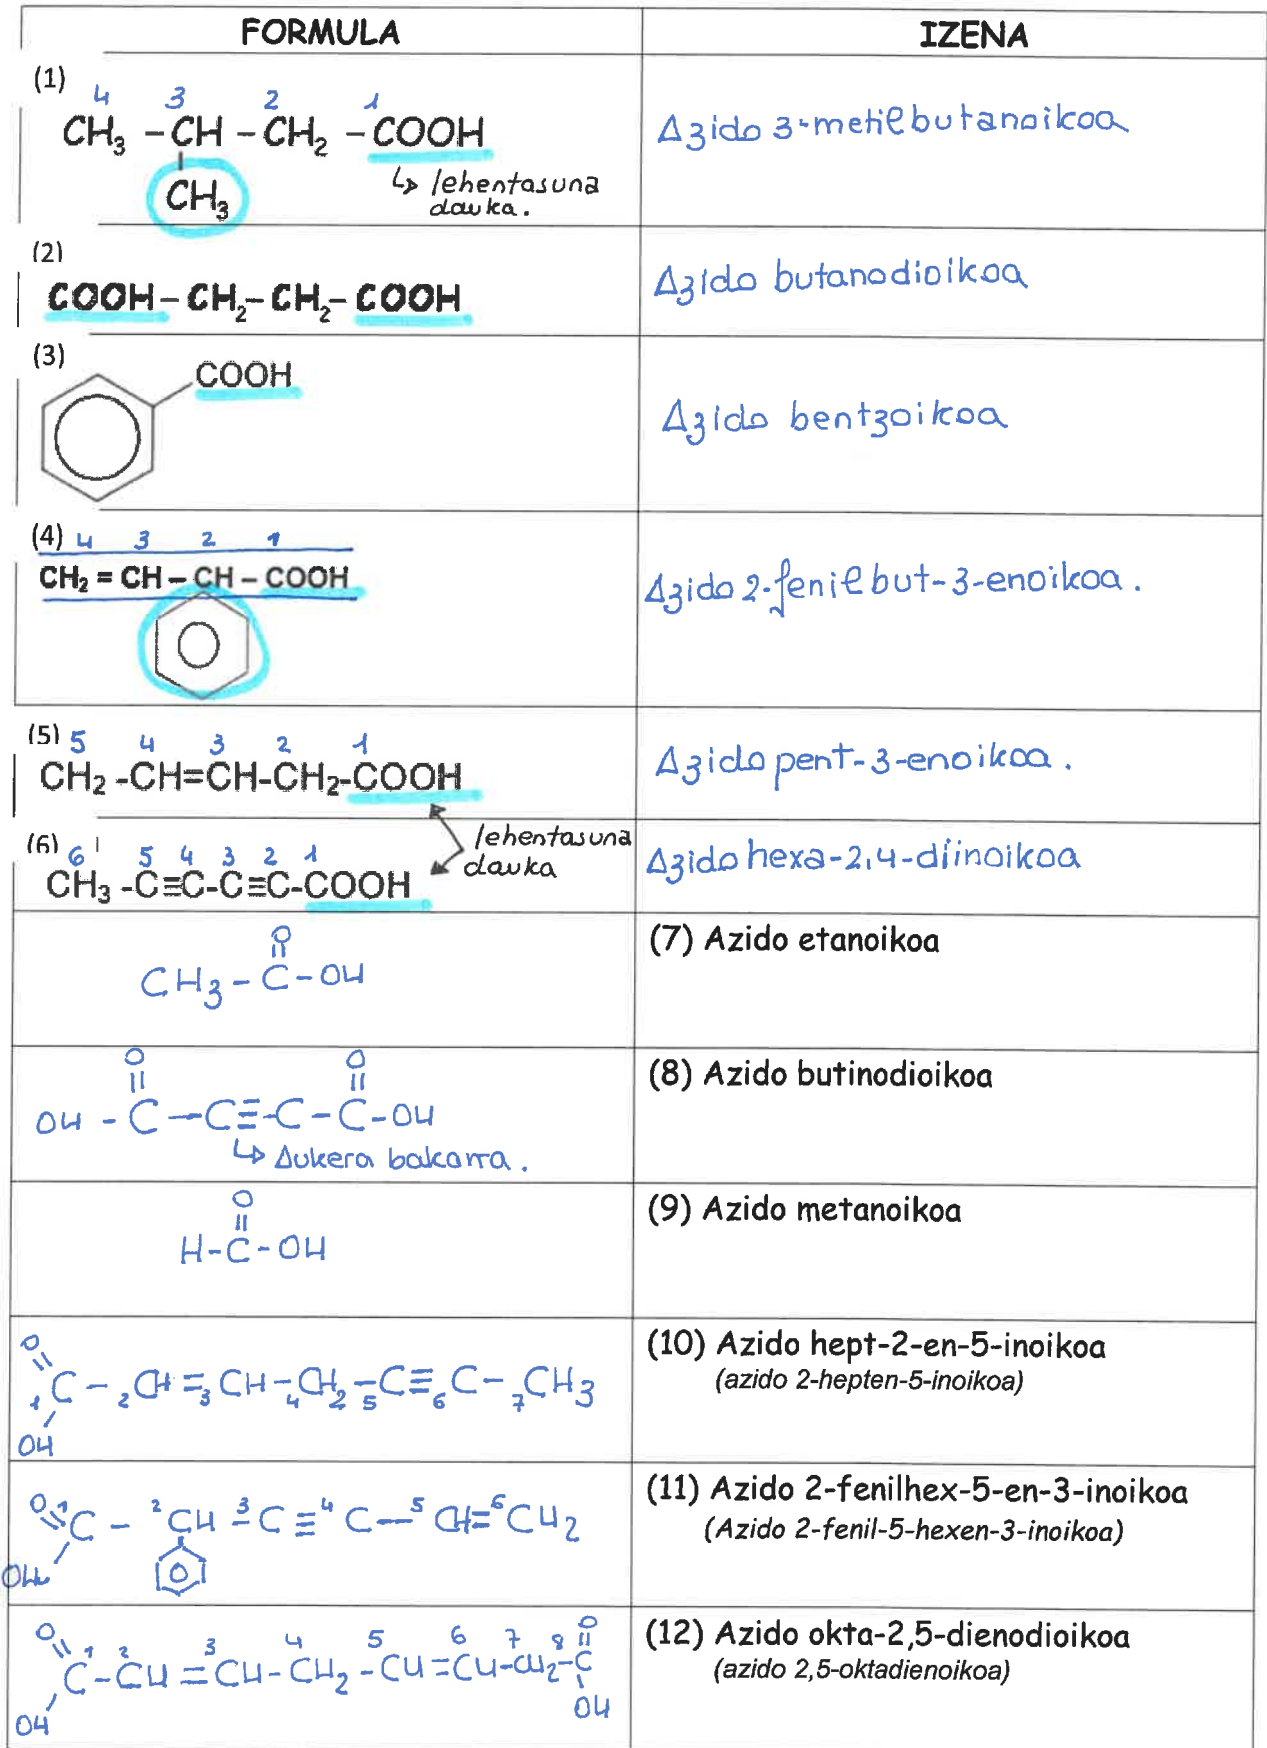 FORMULA IZENA
(1)
4 3 2 1
CH₃ –CH –CH₂ –COOH
CH₃
↳ lehentasuna
dauka.
Azido 3-metilbutanoikoa
(2)
COOH–CH₂–CH₂–COOH
Azido butanodioikoa
(3)
COOH
Azido bentzoikoa
(4) 4 3 2 1
CH₂ = CH – CH – COOH
Azido 2-fenilbut-3-enoikoa.
(5) 5 4 3 2 1
CH₂ -CH=CH-CH₂-COOH
Azido pent-3-enoikoa.
lehentasuna
dauka
(6) 6 5 4 3 2 1
CH₃ -C≡C-C≡C-COOH
Azido hexa-2,4-diinoikoa
O
CH₃ – C – OH
(7) Azido etanoikoa
O O
OH – C – C≡C – C – OH
↳ Aukera bakarra.
(8) Azido butinodioikoa
O
H – C – OH
(9) Azido metanoikoa
O
1C – 2CH = 3CH – 4CH₂ – 5C ≡ 6C – 7CH3
OH
(10) Azido hept-2-en-5-inoikoa
(azido 2-hepten-5-inoikoa)
O 1C – 2CH – 3C ≡ 4C – 5CH = 6CH₂
OH
(11) Azido 2-fenilhex-5-en-3-inoikoa
(Azido 2-fenil-5-hexen-3-inoikoa)
O 1 2 3 4 5 6 7 8 O
C – CH = CH – CH₂ – CH = CH – CH₂ – C
OH OH
(12) Azido okta-2,5-dienodioikoa
(azido 2,5-oktadienoikoa)